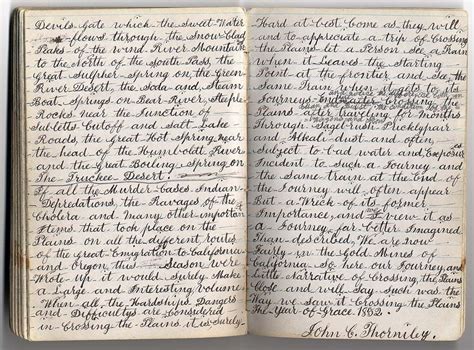 Devils Gate which the Sweet Water
flows through the Snow Clad
Peaks of the wind River Mountain
to the North of the South Pass, the
Great Sulpher Spring on the Green
River Desert, the Soda and Steam
Boat Springs on Bear River, Steeple
Rocks Near the Junction of
Subletts Cutoff and Salt Lake
Roads, the Great Hot Spring near
the head of the Humboldt River
and the Great Boiling Spring on
The Truckee Desert.
If all the Murder Cases Indian
Depredations, the Ravages of the
Cholera and Many other importan
Items that took place on the
Plains on all the different routes
of the Great Emigration to California
and Oregon this Season were
Wrote up it would surely Make
a Large and Interesting Volume
When all the Hardships Dangers
and Difficultys are Considered
in Crossing the Plains it is Surely
Hard at best Come as they will
and to appreciate a trip of Crossing
the Plains let a Person See a Train
when it leaves the Starting
Point at the frontier and See the
Same Train when it gets to its
Journeys End after Crossing the
Plains after traveling for Months
Through Sagebrush Pricklypair
and Alkali Dust and often
Subject to bad water and
Incident to Such a Journey and
the Same train at the End of
the Journey will often appear
But a Wreck of its former
Importance, and I view it as
a Journey far better Imagined
Than described, We are now
Safely in the Gold Mines of
California So here our Journey and
Little Narrative of Crossing the Plains
Close and will Say Such was the
Way we Saw it Crossing the Plains
The Year of Grace 1852.
John C. Thorniley.